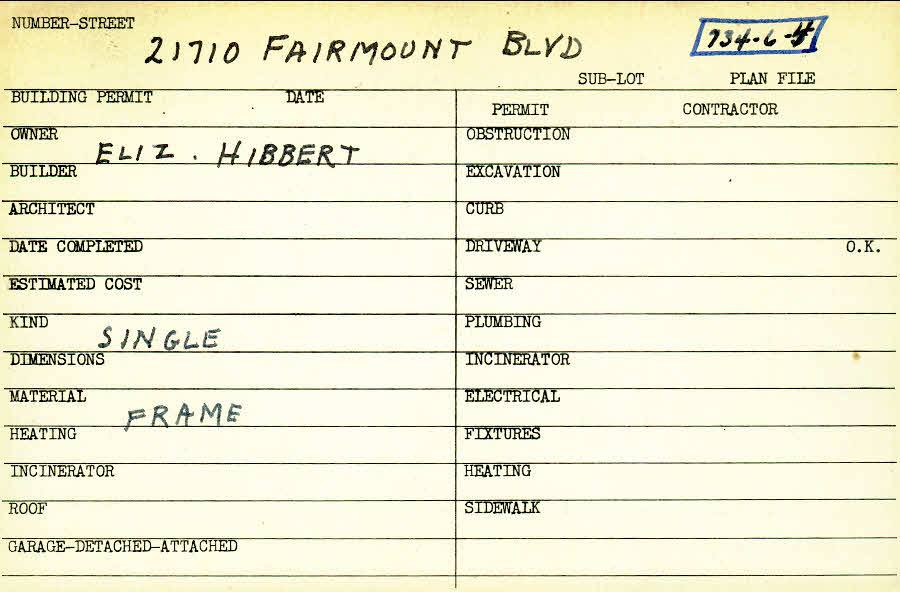 NUMBER-STREET
21710 FAIRMOUNT BLVD
SUB-LOT PLAN FILE
BUILDING PERMIT DATE
PERMIT CONTRACTOR
OWNER ELIZ. HIBBERT
OBSTRUCTION
BUILDER
EXCAVATION
ARCHITECT
CURB
DATE COMPLETED
DRIVEWAY O.K.
ESTIMATED COST
SEWER
KIND SINGLE
PLUMBING
DIMENSIONS
INCINERATOR
MATERIAL FRAME
ELECTRICAL
HEATING
FIXTURES
INCINERATOR
HEATING
ROOF
SIDEWALK
GARAGE-DETACHED-ATTACHED